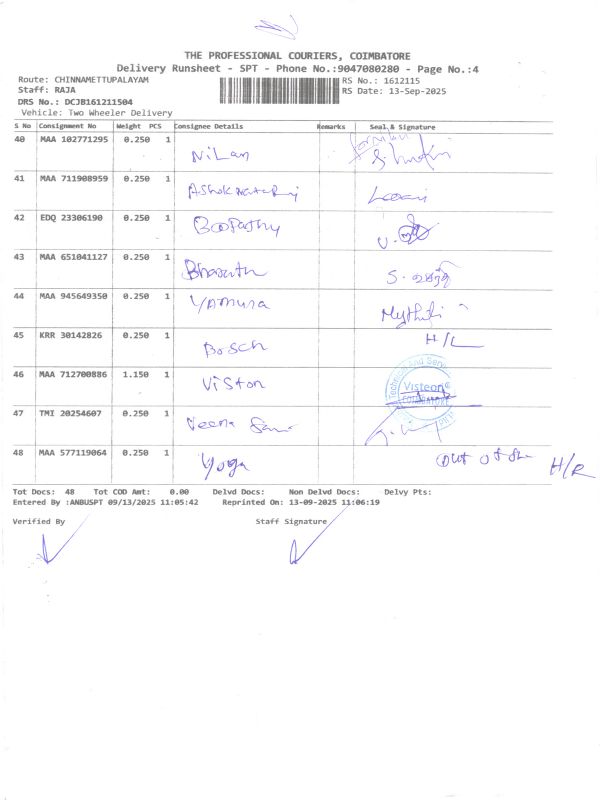 THE PROFESSIONAL COURIERS, COIMBATORE
Delivery Runsheet - SPT - Phone No.:9047080280 - Page No.:4
Route: CHINNAMETTUPALAYAM RS No.: 1612115
Staff: RAJA RS Date: 13-Sep-2025
DRS No.: DCJB161211504
Vehicle: Two Wheeler Delivery
S No Consignment No Weight PCS Consignee Details Remarks Seal & Signature
40 MAA 102771295 0.250 1 Nilan
41 MAA 711908959 0.250 1
42 EDQ 23306190 0.250 1 Boopathy
43 MAA 651041127 0.250 1 Bharath
44 MAA 945649350 0.250 1 Yamuna Mythili
45 KRR 30142826 0.250 1 Bosch H/L
46 MAA 712700886 1.150 1 Viston Technical and Visteon COIMBATORE
47 TMI 20254607 0.250 1 Veena
48 MAA 577119064 0.250 1 Yoga out of H/R
Tot Docs: 48 Tot COD Amt: 0.00 Delvd Docs: Non Delvd Docs: Delvy Pts:
Entered By :ANBUSPT 09/13/2025 11:05:42 Reprinted On: 13-09-2025 11:06:19
Verified By Staff Signature